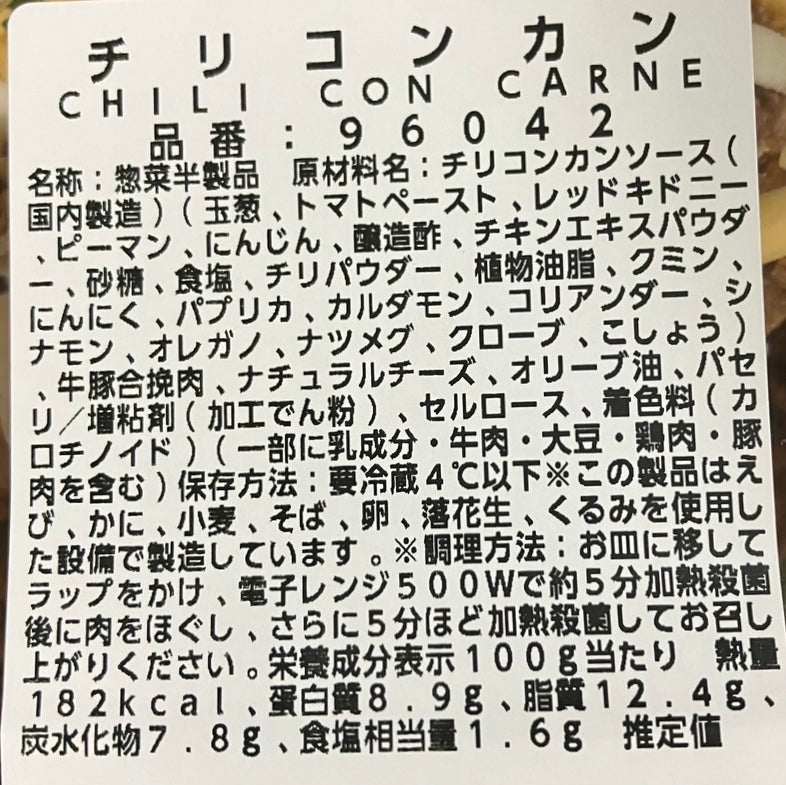 チリコンカン
CHILI CON CARNE
品番:96042
名称:惣菜半製品 原材料名:チリコンカンソース(
国内製造)(玉葱、トマトペースト、レッドキドニー
、ピーマン、にんじん、醸造酢、チキンエキスパウダ
ー、砂糖、食塩、チリパウダー、植物油脂、クミン、
にんにく、パプリカ、カルダモン、コリアンダー、シ
ナモン、オレガノ、ナツメグ、クローブ、こしょう)
、牛豚合挽肉、ナチュラルチーズ、オリーブ油、パセ
リ/増粘剤(加工でん粉)、セルロース、着色料(カ
ロチノイド)(一部に乳成分・牛肉・大豆・鶏肉・豚
肉を含む)保存方法:要冷蔵4℃以下※この製品はえ
び、かに、小麦、そば、卵、落花生、くるみを使用し
た設備で製造しています。※調理方法:お皿に移して
ラップをかけ、電子レンジ500Wで約5分加熱殺菌
後に肉をほぐし、さらに5分ほど加熱殺菌してお召し
上がりください。栄養成分表示100g当たり 熱量
182kcal、蛋白質8.9g、脂質12.4g、
炭水化物7.8g、食塩相当量1.6g 推定値